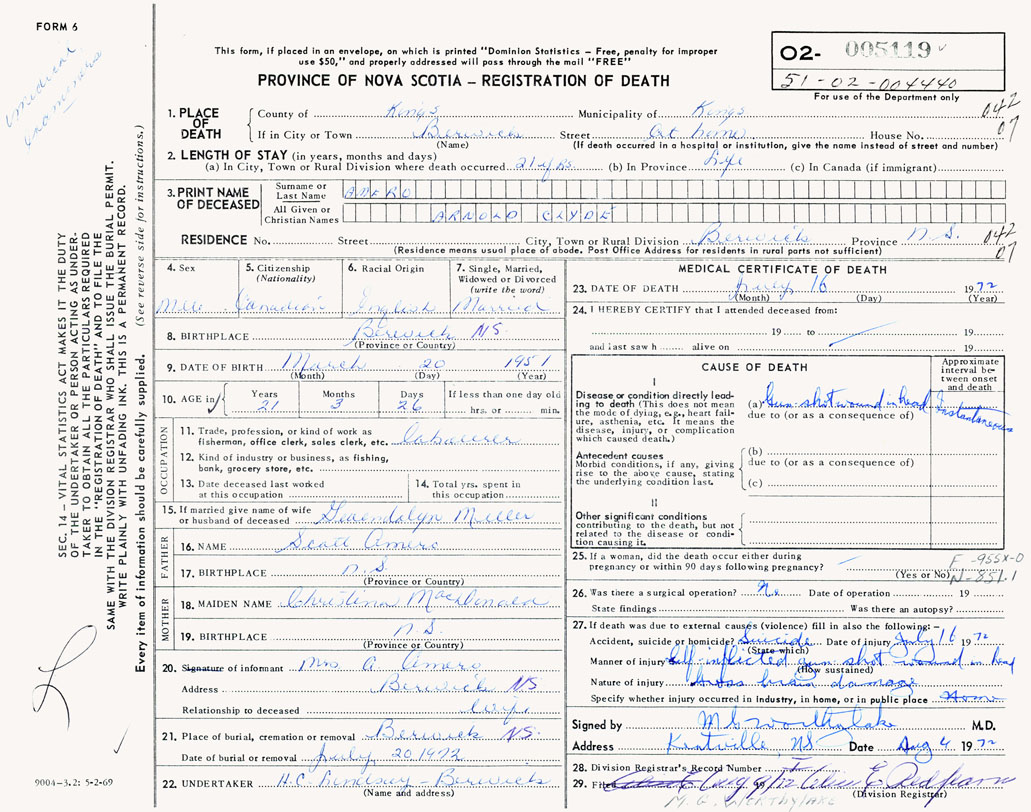 FORM 6
medical
examiners
This form, if placed in an envelope, on which is printed "Dominion Statistics – Free, penalty for improper
use $50," and properly addressed will pass through the mail "FREE"
PROVINCE OF NOVA SCOTIA – REGISTRATION OF DEATH
02- 005119
51-02-004440
For use of the Department only
1. PLACE OF DEATH
County of Kings Municipality of Kings
042
07
If in City or Town Berwick Street At home House No.
(Name) (If death occurred in a hospital or institution, give the name instead of street and number)
2. LENGTH OF STAY (in years, months and days)
(a) In City, Town or Rural Division where death occurred 21 yrs (b) In Province Life (c) In Canada (if immigrant)
3. PRINT NAME OF DECEASED
Surname or Last Name AMERO
All Given or Christian Names ARNOLD CLYDE
RESIDENCE No. Street City, Town or Rural Division Berwick Province N.S.
042
07
(Residence means usual place of abode. Post Office Address for residents in rural parts not sufficient)
4. Sex
Male
5. Citizenship
(Nationality)
Canadian
6. Racial Origin
English
7. Single, Married,
Widowed or Divorced
(write the word)
Married
8. BIRTHPLACE Berwick NS.
(Province or Country)
9. DATE OF BIRTH March 20 1951
(Month) (Day) (Year)
10. AGE in
Years 21
Months 3
Days 26
If less than one day old
hrs. or min.
OCCUPATION
11. Trade, profession, or kind of work as
fisherman, office clerk, sales clerk, etc. labourer
12. Kind of industry or business, as fishing,
bank, grocery store, etc.
13. Date deceased last worked
at this occupation
14. Total yrs. spent in
this occupation
15. If married give name of wife
or husband of deceased Gwendolyn Miller
FATHER
16. NAME Scott Amero
17. BIRTHPLACE N.S.
(Province or Country)
MOTHER
18. MAIDEN NAME Christina MacDonald
19. BIRTHPLACE N.S.
(Province or Country)
20. Signature of informant Mrs A. Amero
Address Berwick NS
Relationship to deceased wife
21. Place of burial, cremation or removal Berwick NS.
Date of burial or removal July 20 1972
22. UNDERTAKER H.C. Lindsay - Berwick
(Name and address)
MEDICAL CERTIFICATE OF DEATH
23. DATE OF DEATH July 16 1972
(Month) (Day) (Year)
24. I HEREBY CERTIFY that I attended deceased from:
19 to 19
and last saw h alive on 19
CAUSE OF DEATH
Approximate
interval be-
tween onset
and death
I
Disease or condition directly lead-
ing to death (This does not mean
the mode of dying, e.g., heart fail-
ure, asthenia, etc. It means the
disease, injury, or complication
which caused death.)
(a) Gun shot wound in head
Instantaneous
due to (or as a consequence of)
Antecedent causes
Morbid conditions, if any, giving
rise to the above cause, stating
the underlying condition last.
(b)
due to (or as a consequence of)
(c)
II
Other significant conditions
contributing to the death, but not
related to the disease or condi-
tion causing it.
25. If a woman, did the death occur either during
pregnancy or within 90 days following pregnancy?
(Yes or No)
E-955X-0
N-851.1
26. Was there a surgical operation? No Date of operation 19
State findings Was there an autopsy?
27. If death was due to external causes (violence) fill in also the following: –
Accident, suicide or homicide? Suicide Date of injury July 16 1972
(State which)
Manner of injury Self inflicted gun shot wound in head
(How sustained)
Nature of injury Gross brain damage
Specify whether injury occurred in industry, in home, or in public place Home
Signed by M G Worthylake M.D.
Address Kentville, NS Date Aug 4 1972
28. Division Registrar's Record Number
29. Filed Aug 9/72
(Division Registrar)
M. G. WORTHYLAKE
SEC. 14 – VITAL STATISTICS ACT MAKES IT THE DUTY
OF THE UNDERTAKER OR PERSON ACTING AS UNDER-
TAKER TO OBTAIN ALL THE PARTICULARS REQUIRED
IN THE "REGISTRATION OF DEATH" AND TO FILE THE
SAME WITH THE DIVISION REGISTRAR WHO SHALL ISSUE THE BURIAL PERMIT.
WRITE PLAINLY WITH UNFADING INK. THIS IS A PERMANENT RECORD.
Every item of information should be carefully supplied. (See reverse side for instructions.)
9004-3.2: 5-2-69